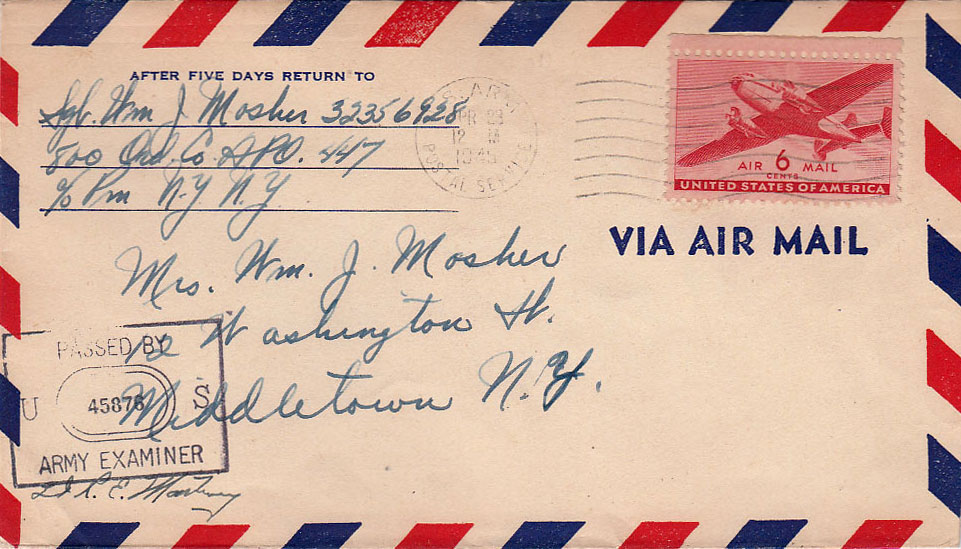 AFTER FIVE DAYS RETURN TO
Sgt. Wm J. Mosher 32356928
800 Ord. Co. APO. 447
c/o Pm N.Y. N.Y.
U.S. ARMY
APR 
12 M
194
POSTAL SERVICE
AIR 6 MAIL
CENTS
UNITED STATES OF AMERICA
VIA AIR MAIL
Mrs. Wm. J. Mosher
12 Washington St.
Middletown N.Y.
PASSED BY
U 45876 S
ARMY EXAMINER
Lt. E.